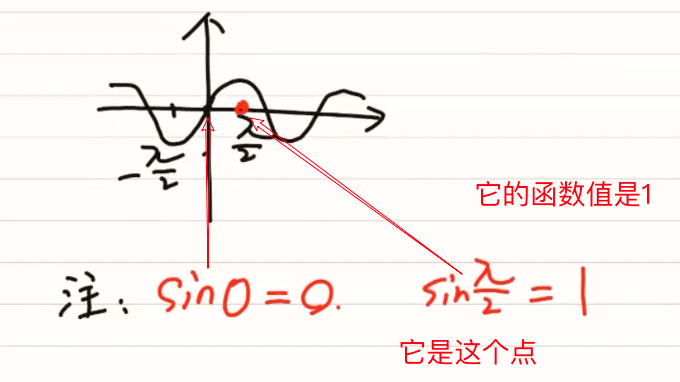 -π/2
π/2
它的函数值是1
注: sin0=0. sinπ/2=1
它是这个点